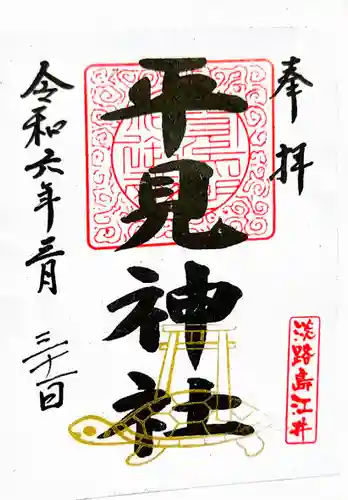 奉拝
平見神社
令和六年三月三十一日
淡路島江井